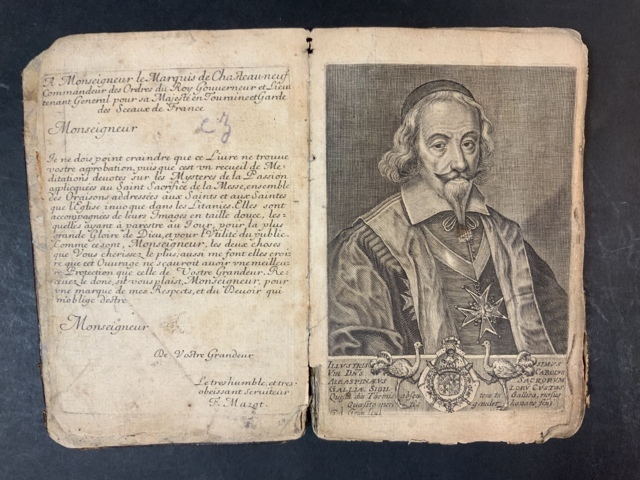 A Monseigneur le Marquis de Chasteau-neuf
Commandeur des Ordres du Roy Gouuerneur et Lieu
tenant General pour sa Majesté en Touraine et Garde
des Sceaux de France
Monseigneur
Je ne dois point craindre que ce Liure ne trouue
vostre approbation, puis que c'est vn recueil de Me-
ditations deuotes sur les Mysteres de la Passion
appliquées au Saint Sacrifice de la Messe, ensemble
des Oraisons addressées aux Saints et aux Saintes
que l'Eglise inuoque dans les Litanies. Elles sont
accompagnées de leurs Images en taille douce, les-
quelles ayant à parestre au Jour, pour la plus
grande Gloire de Dieu, et pour l'Vtilité du public.
Comme ce sont, Monseigneur, les deux choses
que Vous cherissez le plus; aussi me font elles croi-
re que cet Ouurage ne scauroit auoir vne meilleu-
re Protection que celle de Vostre Grandeur. Re-
ceuez le donc, s'il vous plaist, Monseigneur, pour
vne marque de mes Respects, et du Deuoir qui
m'oblige d'estre.
Monseigneur
De Vostre Grandeur
Le tres humble, et tres
obeissant seruiteur
F. Mazot.
ILLVSTRIS SIMVS
VIR DNS CAROLVS
ALBASPINÆVS SACRORVM
GALLIÆ SIGIL LORV CVSTOS
Quem diu absen
gaudet honore